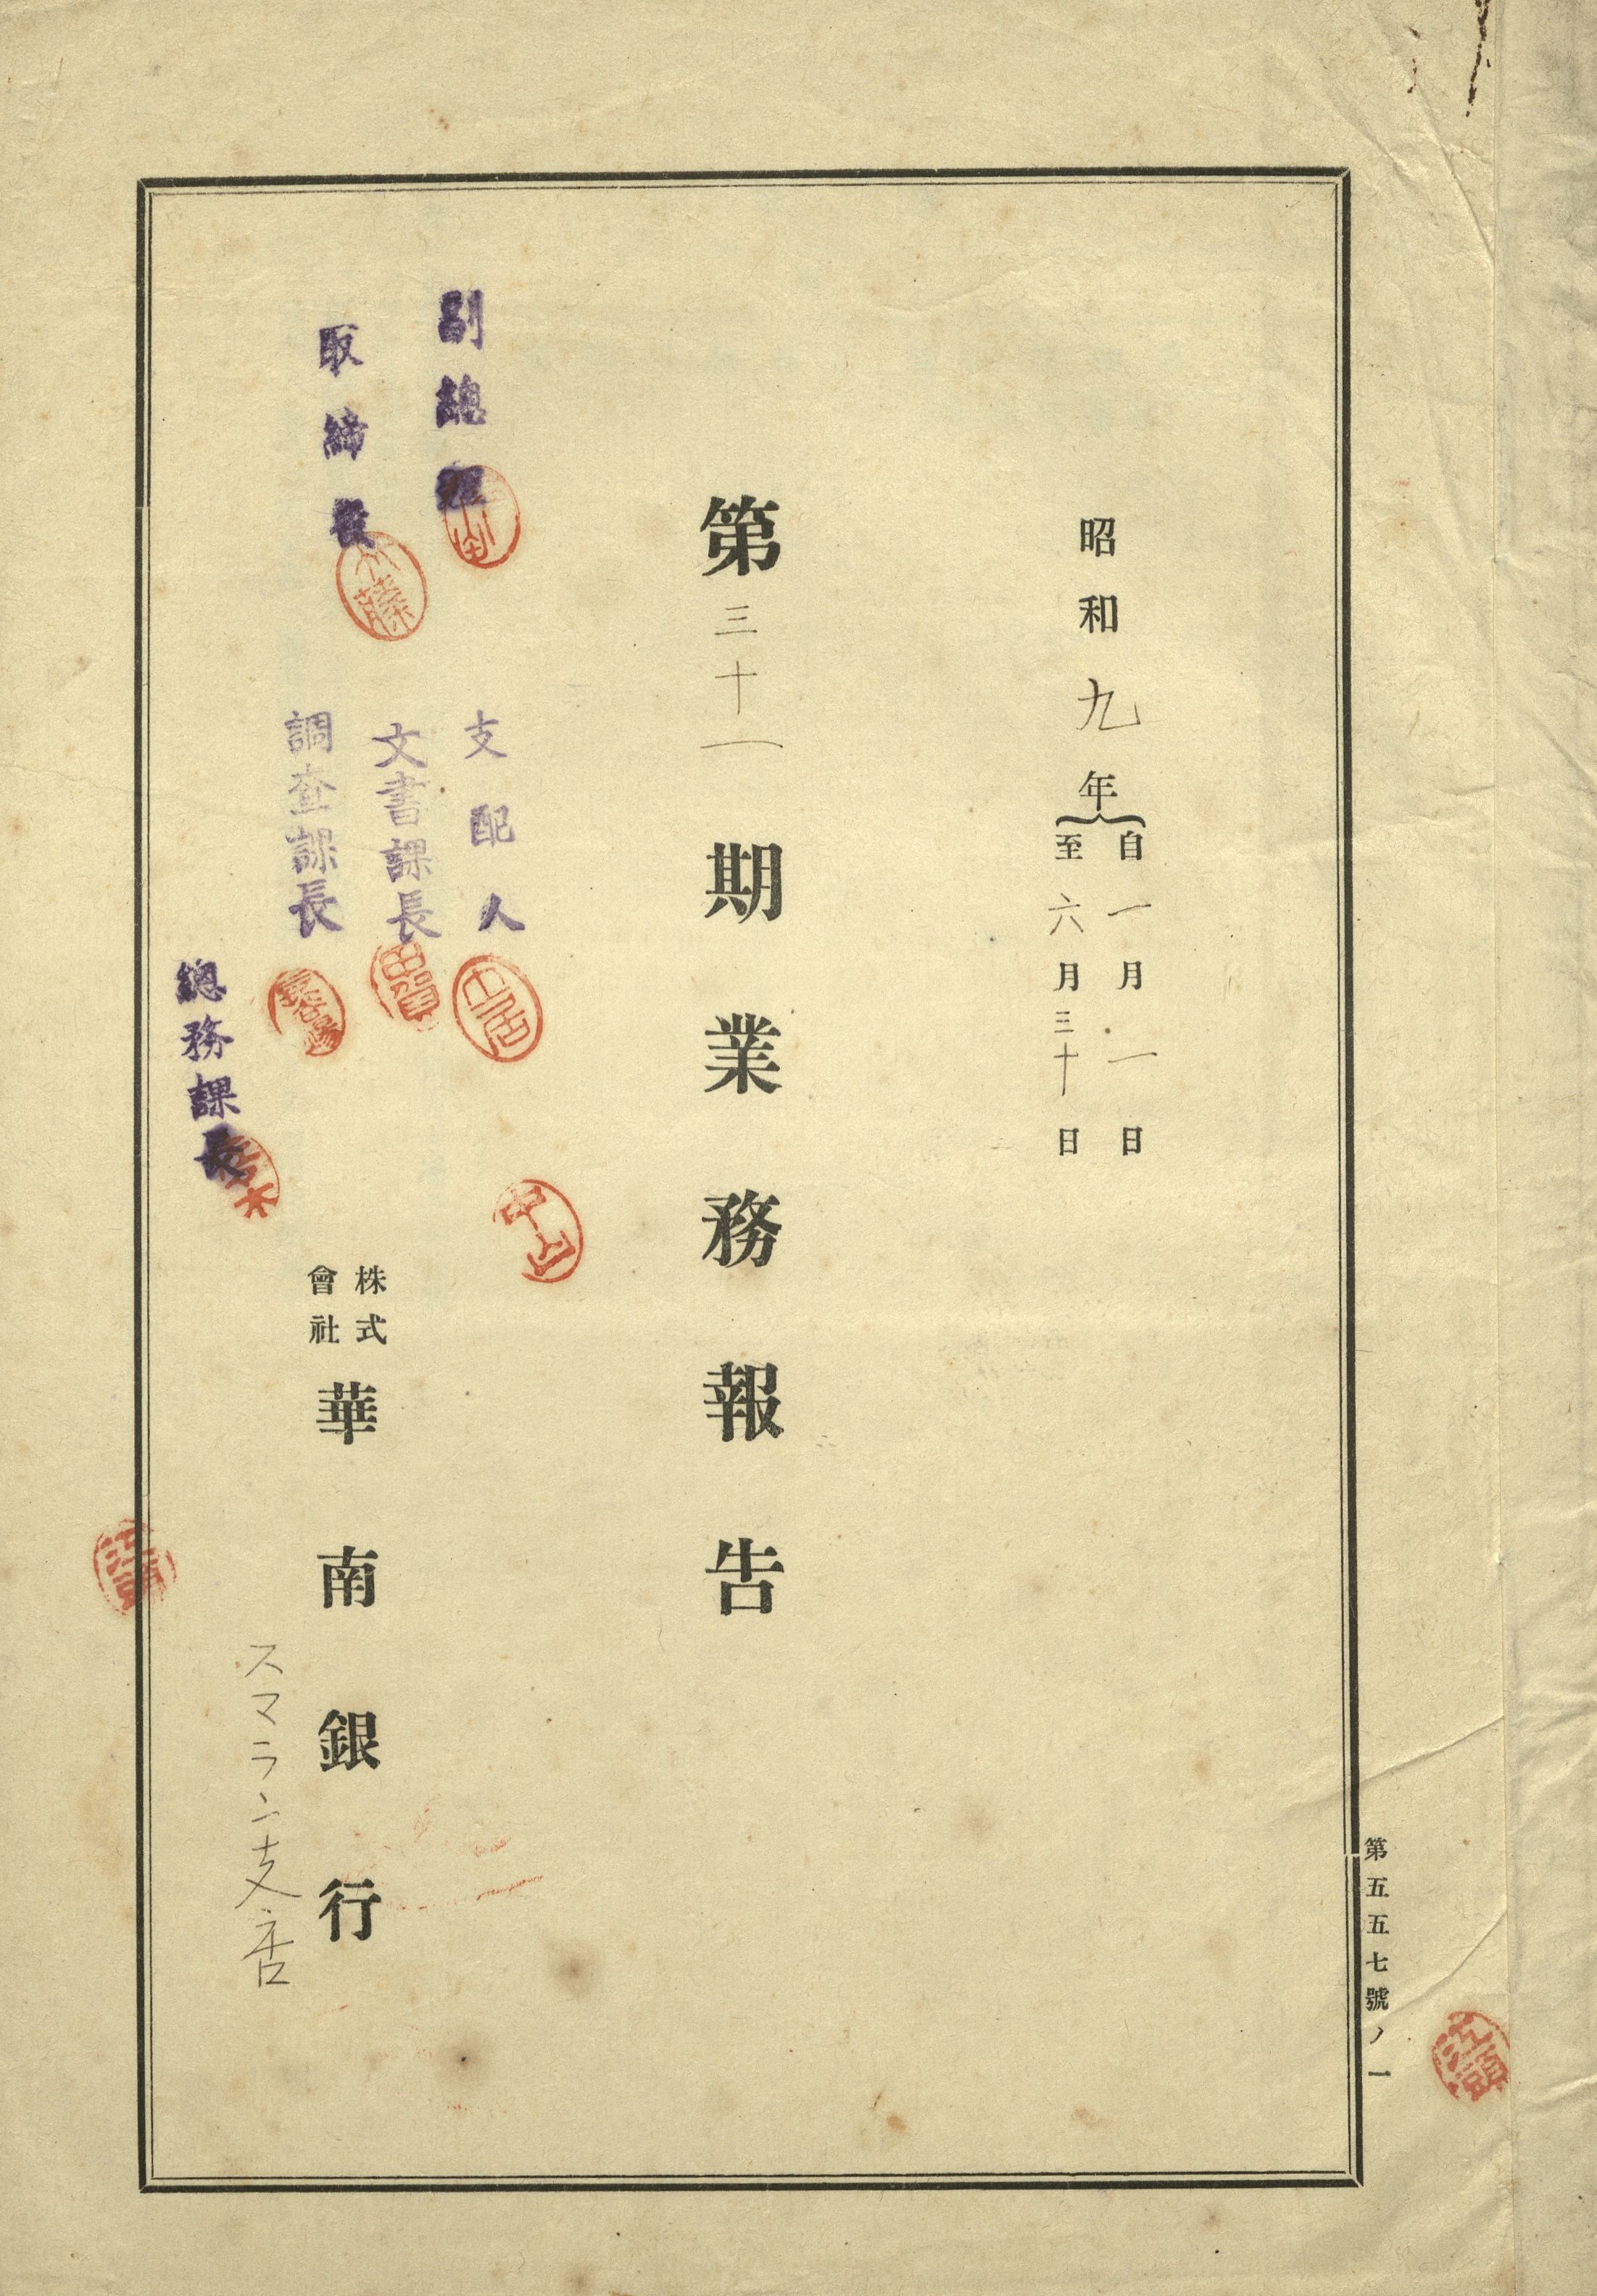 第五五七號ノ一
昭和九年
自一月一日
至六月三十日
第三十一期業務報告
副總理
取締役
支配人
文書課長
調查課長
總務課長
中山
株式會社華南銀行
スマラン支店